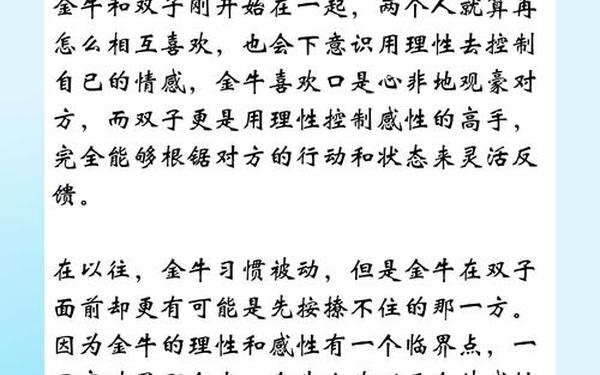 金牛和双子刚开始在一起，两个人就算再
怎么相互喜欢，也会下意识用理性去控制
自己的情感，金牛喜欢口是心非地观豪对
方，而双子更是用理性控制感性的高手，
完全能够根锯对方的行动和状态来灵活反
馈。
在以往，金牛习惯被动，但是金牛在双子
面前却更有可能是先按撩不住的那一方。
因为金牛的理性和感性有一个临界点，一